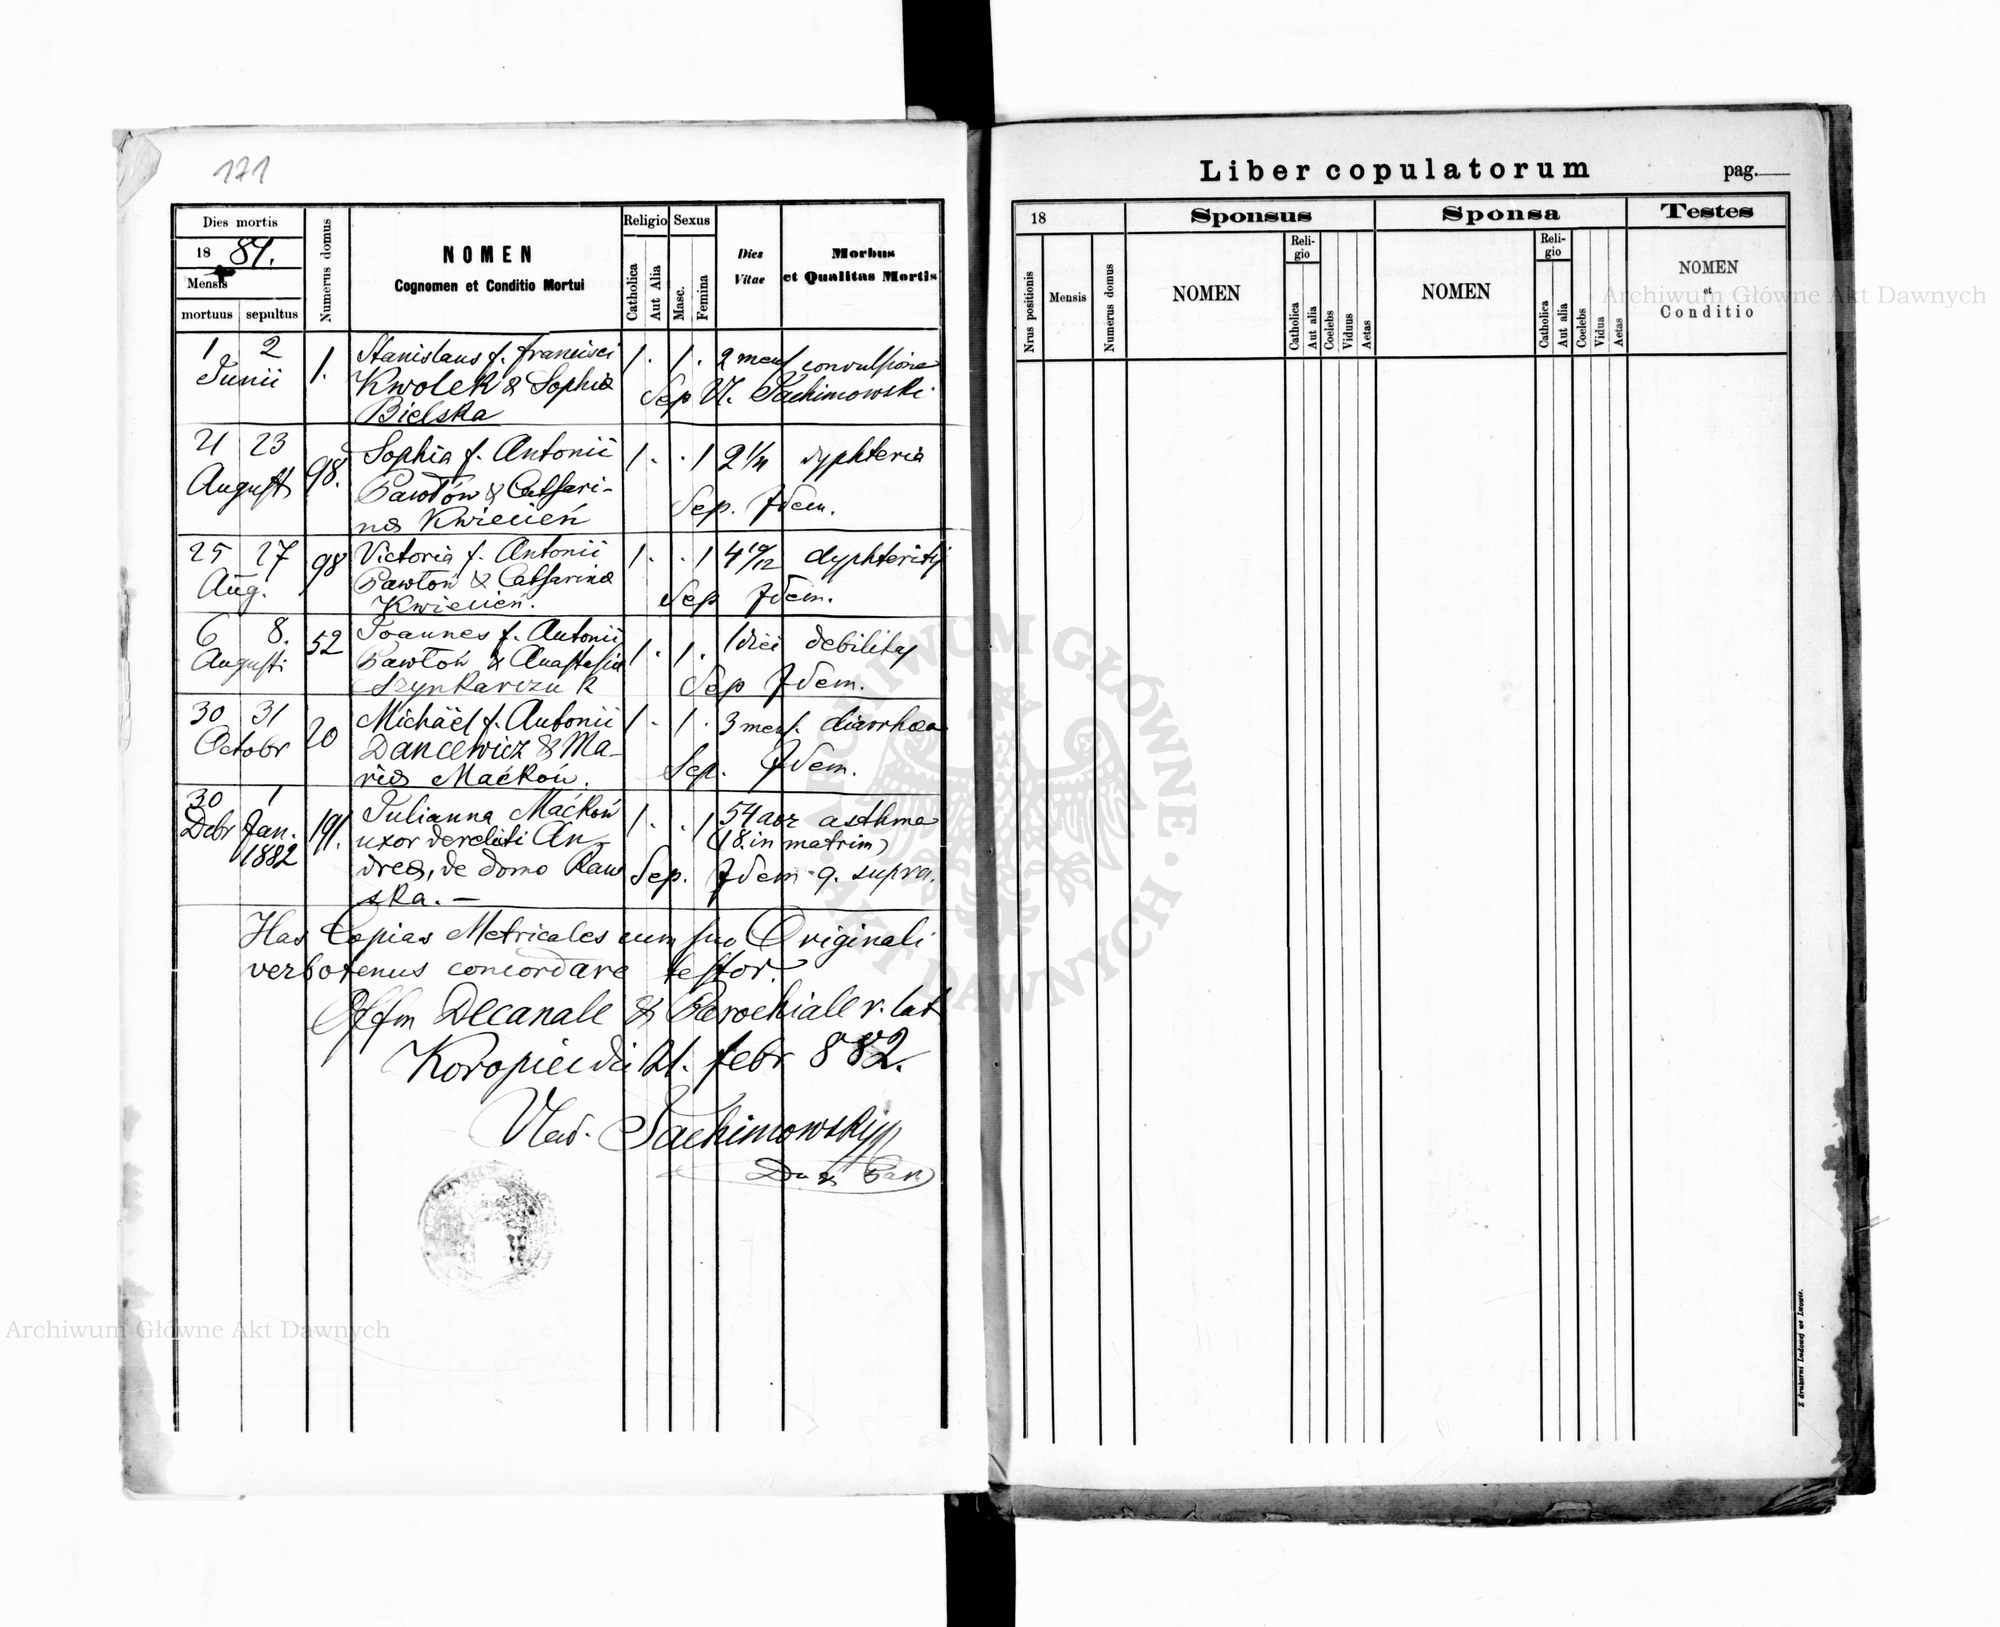 171
Dies mortis
18 81.
Mensis
mortuus sepultus
Numerus domus
NOMEN
Cognomen et Conditio Mortui
Religio
Catholica
Aut Alia
Sexus
Masc.
Femina
Dies
Vitae
Morbus
et Qualitas Mortis
1 2 Stanislaus f. Francisci 1. 1. 2 mens convulsione
Junii 1. Kwolek & Sophia Sep Vl. Jachimowski
Bielska
21 23 Sophia f. Antonii 1. .1 2 dyphteria
August 98. Pawłów & Cathari-
na Kwiecień Sep. Idem.
25 27 98 Victoria f. Antonii 1. .1 4 10/12 dyphteritis
Aug. Pawłoń & Catharina
Kwiecień. Sep Idem.
6 8. 52 Joannes f. Antonii 1. 1. 1 diei debilitas
Augusti Pawłoń & Anastasia
Szynkarczuk Sep Idem.
30 31 20 Michaël f. Antonii 1. 1. 3 mens. diarrhoea
Octobr Dancewicz & Ma-
ria Maćków. Sep. Idem.
30 1 Julianna Maćków 1. .1 54 aor asthma
Debr Jan. 191. uxor derelicti An- (18. in matrim)
1882 drea, de domo Raw Sep. Idem q. supra.
ska. —
Has Copias Metricales cum suo Originali
verbotenus concordare testor.
Offm Decanale & Parochiale r. lat
Koropiec die 21. febr 882.
Vlad. Jachimowski
Liber copulatorum pag.
18
Sponsus
Sponsa
Testes
Nrus positionis
Mensis
Numerus domus
NOMEN
Reli-
gio
Catholica
Aut alia
Coelebs
Viduus
Aetas
NOMEN
Reli-
gio
Catholica
Aut alia
Coelebs
Vidua
Aetas
NOMEN
et
Conditio
Z drukarni Ludowej we Lwowie.
Archiwum Główne Akt Dawnych
ARCHIWUM GŁÓWNE AKT DAWNYCH
Archiwum Główne Akt Dawnych